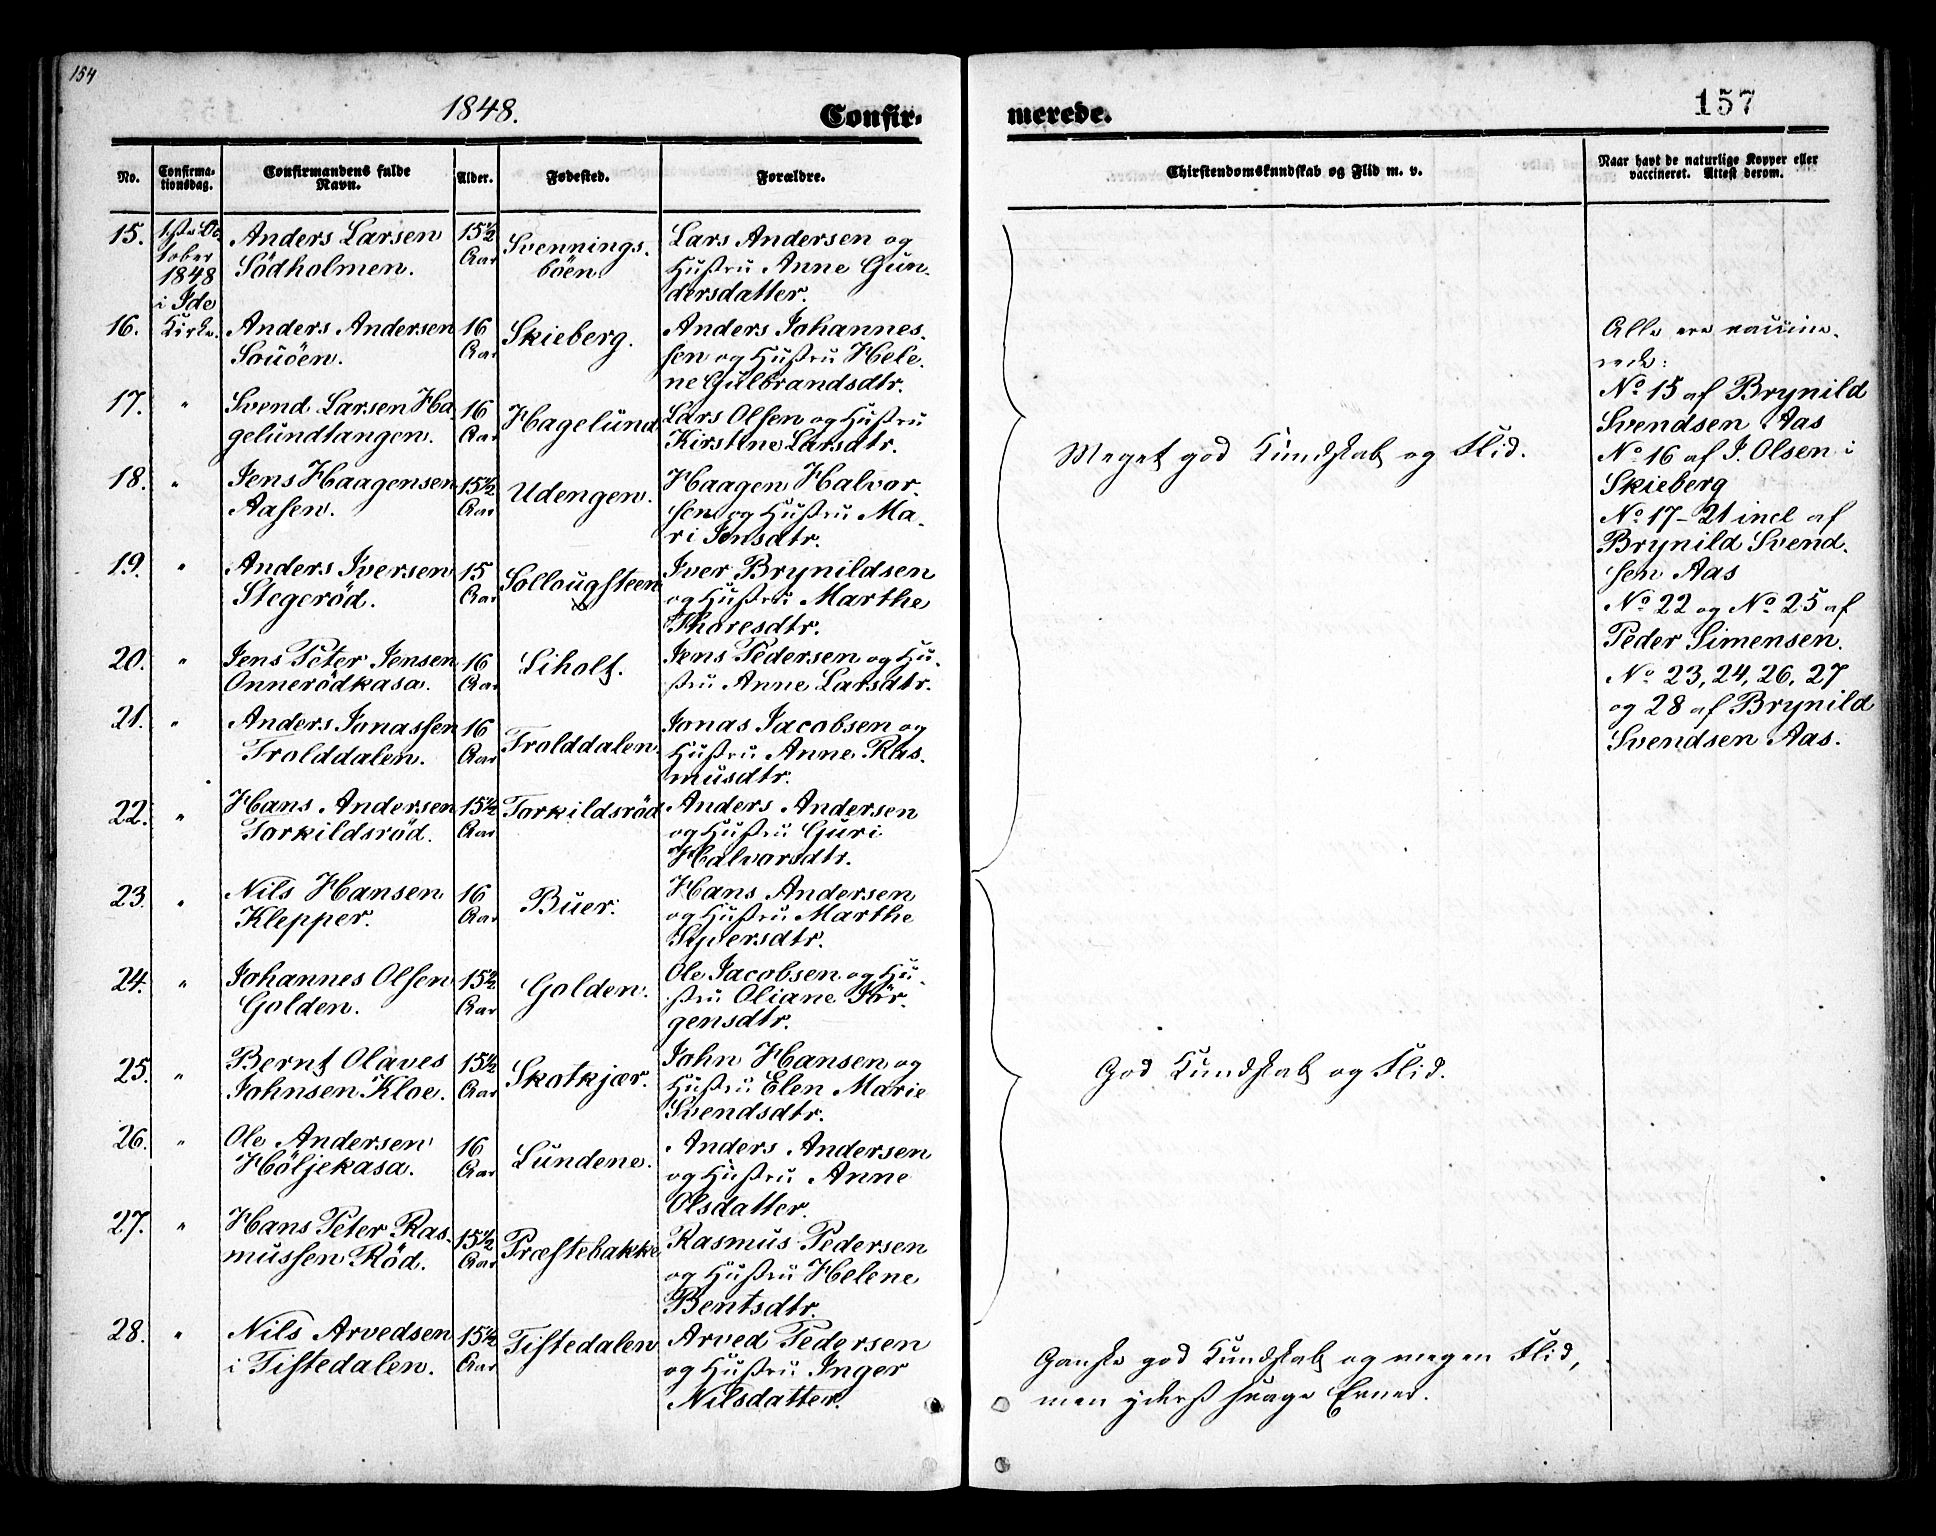 154
1848.
Confir-
merede.
157
No.
Confirma-
tionsdag.
Confirmandens fulde
Navn.
Alder.
Fødested.
Forældre.
Chirstendomskundskab og Flid m. v.
Naar havt de naturlige Kopper eller
vaccineret. Attest derom.
15.
1ste Oc
tober
1848
i Ide
Kirke.
Anders Larsen
Södholmen.
15½
Aar
Svennings-
böen.
Lars Andersen og
Hustru Anne Gun-
dersdatter.
16.
Anders Andersen
Souöen.
16
Aar
Skieberg.
Anders Johannes-
sen og Hustru Hele-
ne Gulbrandsdtr.
17.
"
Svend Larsen Ha-
gelundtangen.
16
Aar
Hagelund
Lars Olsen og Hustru
Kirstine Larsdtr.
18.
"
Jens Haagensen
Aasen.
15½
Aar
Udengen.
Haagen Halvor-
sen og Hustru Ma-
ri Jensdtr.
19.
"
Anders Iversen
Stegeröd.
15
Aar
Sollougsteen
Iver Brynildsen
og Hustru Marthe
Thoresdtr.
20.
"
Jens Peter Jensen
Onnerödkasa.
16
Aar
Liholt.
Jens Pedersen og Hu-
stru Anne Larsdtr.
21.
"
Anders Jonassen
Trolddalen.
16
Aar
Trolddalen.
Jonas Jacobsen og
Hustru Anne Ras-
musdtr.
22.
"
Hans Andersen
Torkildsröd.
15½
Aar
Torkildsröd
Anders Andersen
og Hustru Guri
Halvorsdtr.
23.
"
Nils Hansen
Klepper.
16
Aar
Buer.
Hans Andersen
og Hustru Marthe
Syversdtr.
24.
"
Johannes Olsen
Golden.
15½
Aar
Golden.
Ole Jacobsen og Hu-
stru Oliane Jör-
gensdtr.
25.
"
Bernt Olaves
Johnsen Kloe.
15½
Aar
Skotkjær.
John Hansen og
Hustru Elen Marie
Svendsdtr.
26.
"
Ole Andersen
Höljekasa.
16
Aar
Lundene.
Anders Andersen
og Hustru Anne
Olsdatter.
27.
"
Hans Peter Ras-
mussen Röd.
15½
Aar
Præstebakke
Rasmus Pedersen
og Hustru Helene
Bentsdtr.
28.
"
Nils Arvedsen
i Tistedalen.
15½
Aar
Tistedalen
Arved Pedersen
og Hustru Inger
Nilsdatter.
Meget god Kundskab og Flid.
God Kundskab og Flid.
Ganske god Kundskab og megen Flid,
men yderst svage Evner.
Alle ere vaccine-
rede:
No 15 af Brynild
Svendsen Aas
No 16 af J. Olsen i
Skieberg
No 17-21 incl af
Brynild Svend-
sen Aas
No 22 og No 25 af
Peder Simensen.
No 23, 24, 26, 27
og 28 af Brynild
Svendsen Aas.